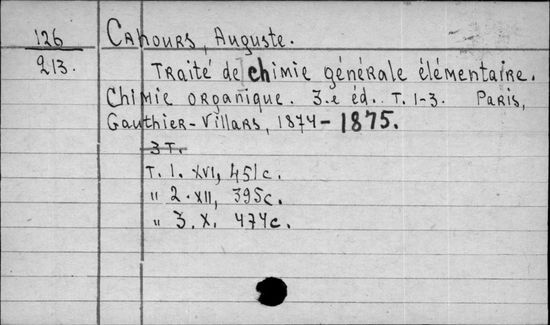 126
213.
Cahours, Auguste.
Traité de chimie générale élémentaire.
Chimie organique. 3.e éd. T. 1-3. Paris,
Gauthier-Villars, 1874-1875.
3 T.
T. 1. XVI, 451c.
" 2. XII, 395c.
" 3. X. 474c.